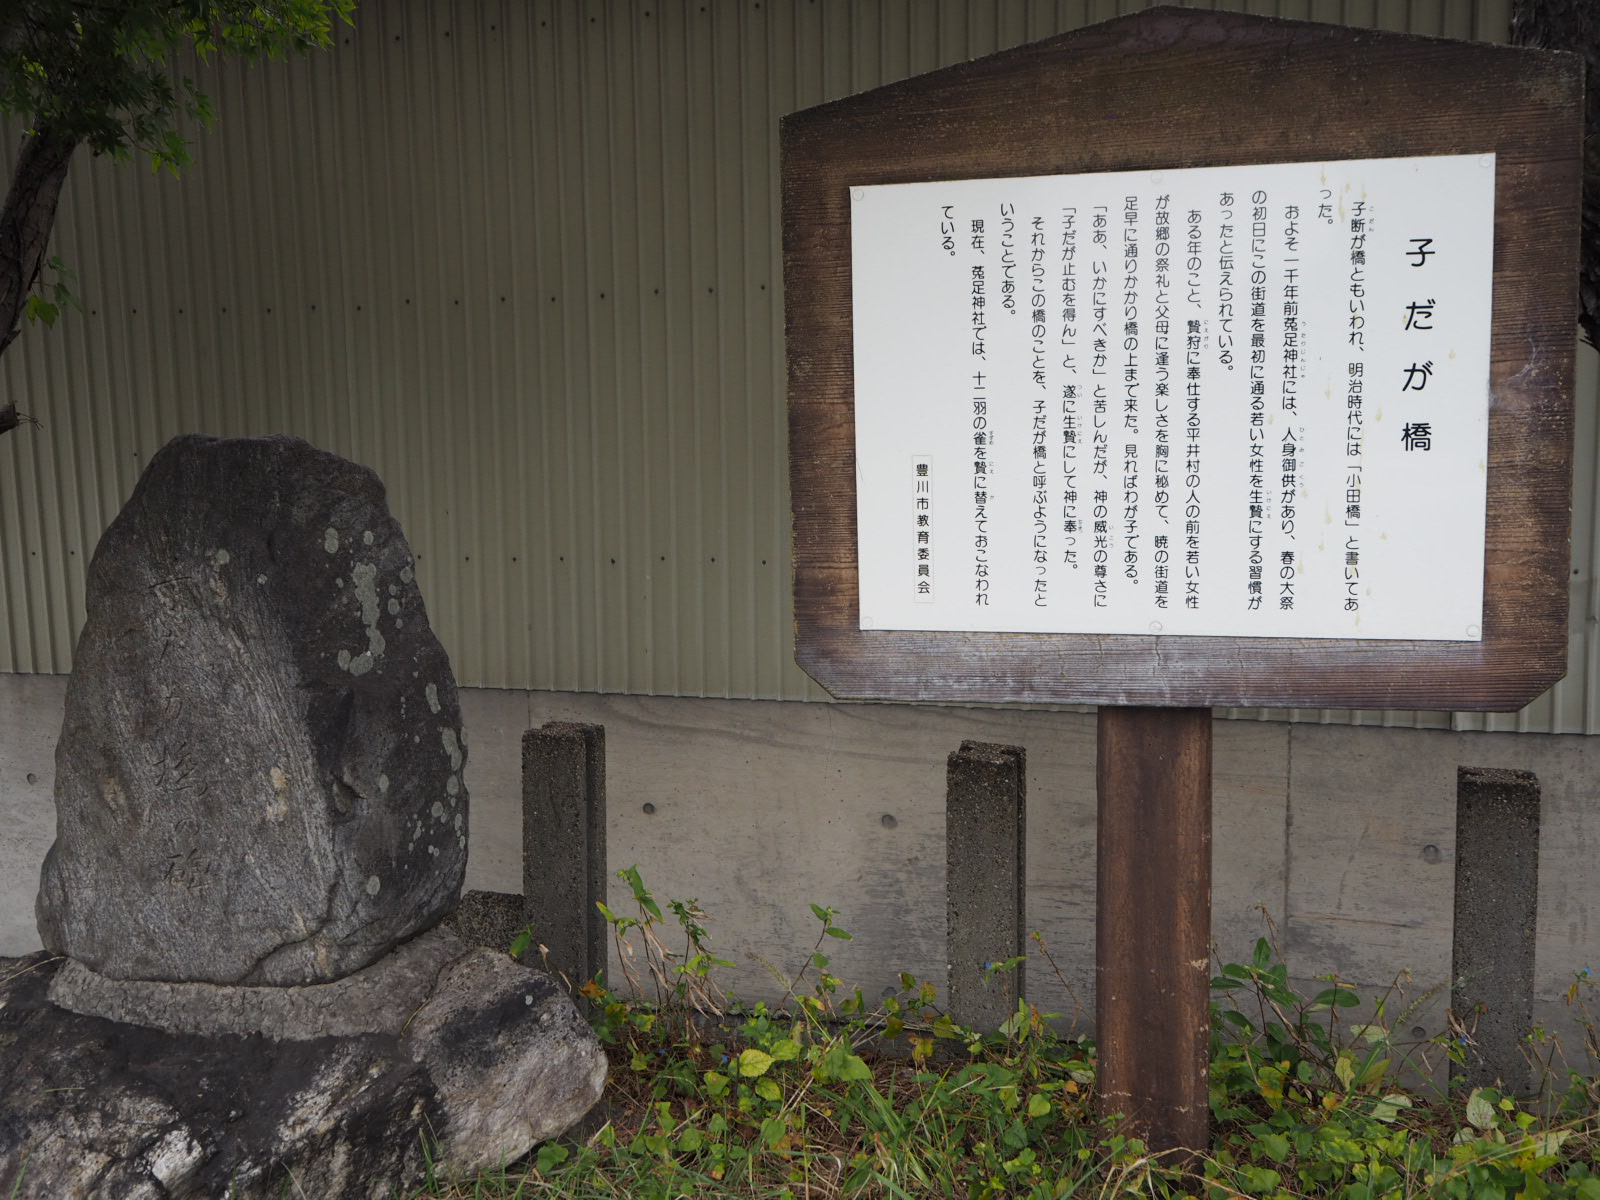 子だが橋
子断が橋ともいわれ、明治時代には「小田橋」と書いてあ
った。
およそ一千年前菟足神社には、人身御供があり、春の大祭
の初日にこの街道を最初に通る若い女性を生贄にする習慣が
あったと伝えられている。
ある年のこと、贄狩に奉仕する平井村の人の前を若い女性
が故郷の祭礼と父母に逢う楽しさを胸に秘めて、暁の街道を
足早に通りかかり橋の上まで来た。見ればわが子である。
「ああ、いかにすべきか」と苦しんだが、神の威光の尊さに
「子だが止むを得ん」と、遂に生贄にして神に奉った。
それからこの橋のことを、子だが橋と呼ぶようになったと
いうことである。
現在、菟足神社では、十二羽の雀を贄に替えておこなわれ
ている。
豊川市教育委員会